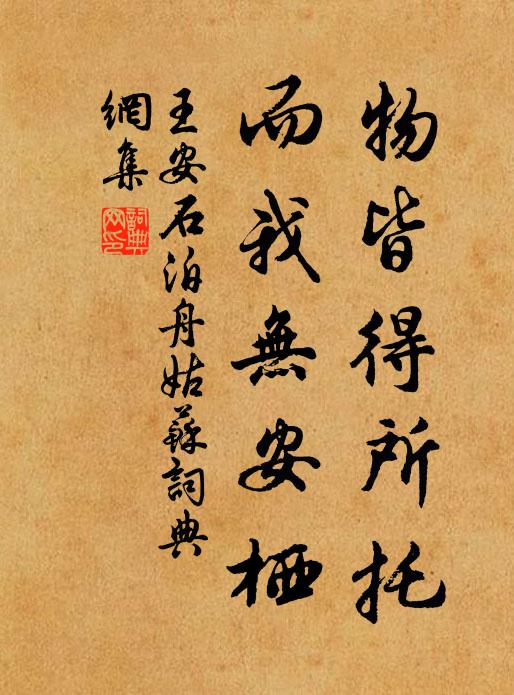 物皆得所托
而我無安栖
王安石泊舟姑蘇詞典
網集
詞典
網印